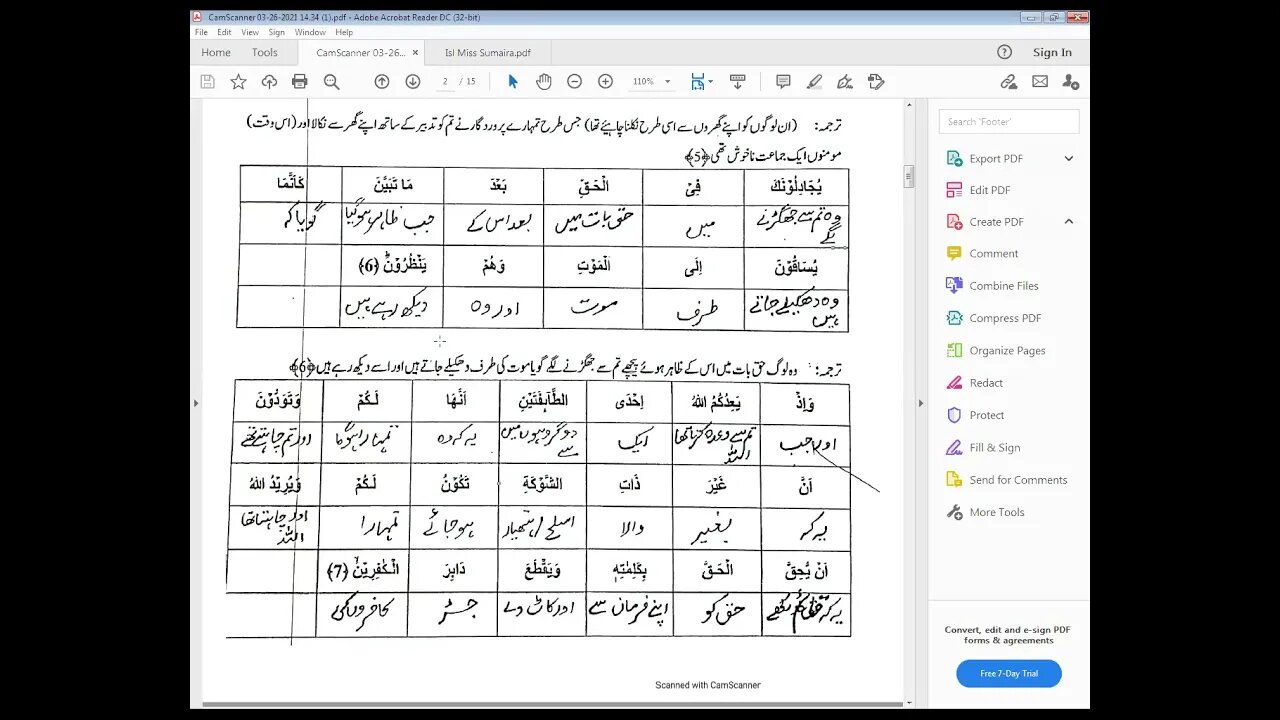 CamScanner 03-26-2021 14.34 (1).pdf - Adobe Acrobat Reader DC (32-bit)
File Edit View Sign Window Help
Home Tools CamScanner 03-26... × Isl Miss Sumaira.pdf Sign In
2 / 15 110%
ترجمہ: (ان لوگوں کو اپنے گھروں سے اسی طرح نکلنا چاہیئے تھا) جس طرح تمہارے پروردگار نے تم کو تدبیر کے ساتھ اپنے گھر سے نکالا اور (اس وقت)
مومنوں ایک جماعت ناخوش تھی ﴿5﴾
يُجَادِلُوْنَكَ فِيْ الْحَقِّ بَعْدَ مَا تَبَيَّنَ كَاَنَّمَا
وہ تم سے جھگڑنے لگے میں حق بات میں بعد اس کے جب ظاہر ہوگیا گویا کہ
يُسَاقُوْنَ اِلَى الْمَوْتِ وَهُمْ يَنْظُرُوْنَ ﴿6﴾
وہ دھکیلے جاتے ہیں طرف موت اور وہ دیکھ رہے ہیں
ترجمہ: وہ لوگ حق بات میں اس کے ظاہر ہوئے پیچھے تم سے جھگڑنے لگے گویا موت کی طرف دھکیلے جاتے ہیں اور اسے دیکھ رہے ہیں ﴿6﴾
وَاِذْ يَعِدُكُمُ اللّٰهُ اِحْدَى الطَّآىِٕفَتَيْنِ اَنَّهَا لَكُمْ وَتَوَدُّوْنَ
اور جب تم سے وعدہ کرتا تھا اللہ ایک دو گروہوں میں سے یہ کہ وہ تمہارا ہوگا اور تم چاہتے تھے
اَنَّ غَيْرَ ذَاتِ الشَّوْكَةِ تَكُوْنُ لَكُمْ وَيُرِيْدُ اللّٰهُ
یہ کہ بغیر والا اسلحے/ہتھیار ہو جائے تمہارا اور چاہتا تھا اللہ
اَنْ يُّحِقَّ الْحَقَّ بِكَلِمٰتِهٖ وَيَقْطَعَ دَابِرَ الْكٰفِرِيْنَ ﴿7﴾
یہ کہ قائم رکھے حق کو اپنے فرمان سے اور کاٹ دے جڑ کافروں کی
Scanned with CamScanner
Search 'Footer'
Export PDF
Edit PDF
Create PDF
Comment
Combine Files
Compress PDF
Organize Pages
Redact
Protect
Fill & Sign
Send for Comments
More Tools
Convert, edit and e-sign PDF
forms & agreements
Free 7-Day Trial